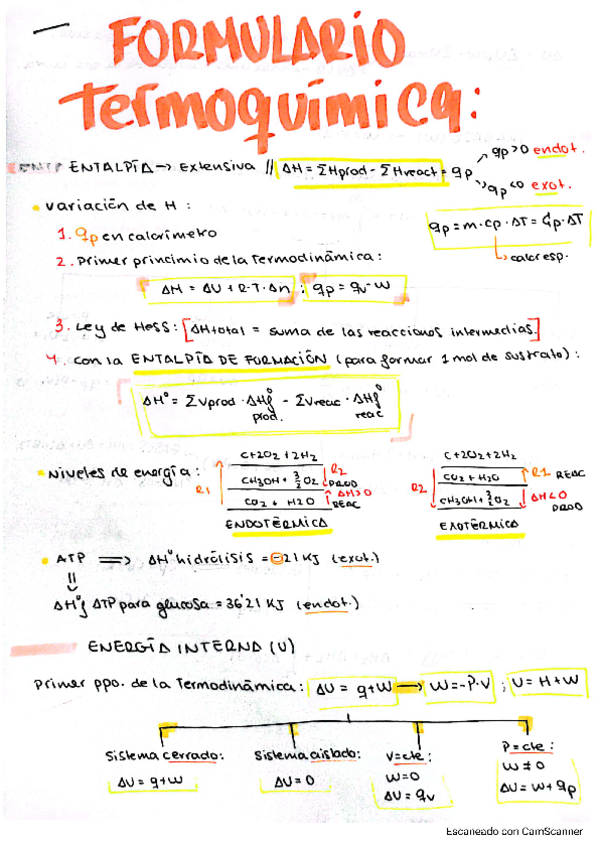 FORMULARIO
Termoquímica:
ENTALPÍA → Extensiva // ΔH = ΣHprod - ΣHreact = qp
qp>0 endot.
qp<0 exot.
Variación de H :
1. qp en calorímetro
qp = m·cp·ΔT = Cp·ΔT
calor esp.
2. Primer princimio de la Termodinámica:
ΔH = ΔU + R·T·Δn ; qp = qv - W
3. Ley de Hess: [ΔHtotal = suma de las reacciones intermedias.]
4. con la ENTALPÍA DE FORMACIÓN (para formar 1 mol de sustrato) :
ΔH° = ΣVprod · ΔHf° prod. - ΣVreac · ΔHf° reac
Niveles de energía :
R1
C+2O2+2H2
CH3OH + 3/2 O2
CO2 + H2O
R2
PROD
ΔH>0
REAC
ENDOTÉRMICA
R2
C+2O2+2H2
CO2 + H2O
CH3OH+3/2 O2
R1 REAC
ΔH<0
PROD
EXOTÉRMICA
ATP ⟹ ΔH° hidrólisis = -21 KJ (exot.)
ΔH°f ATP para glucosa = 36'21 KJ (endot.)
ENERGÍA INTERNA (U)
Primer ppo. de la Termodinámica : ΔU = q+W → W=-P·V ; U = H+W
Sistema cerrado:
ΔU = q+W
Sistema aislado:
ΔU = 0
V=cte :
W=0
ΔU = qv
P=cte :
W ≠ 0
ΔU = W+qp
Escaneado con CamScanner